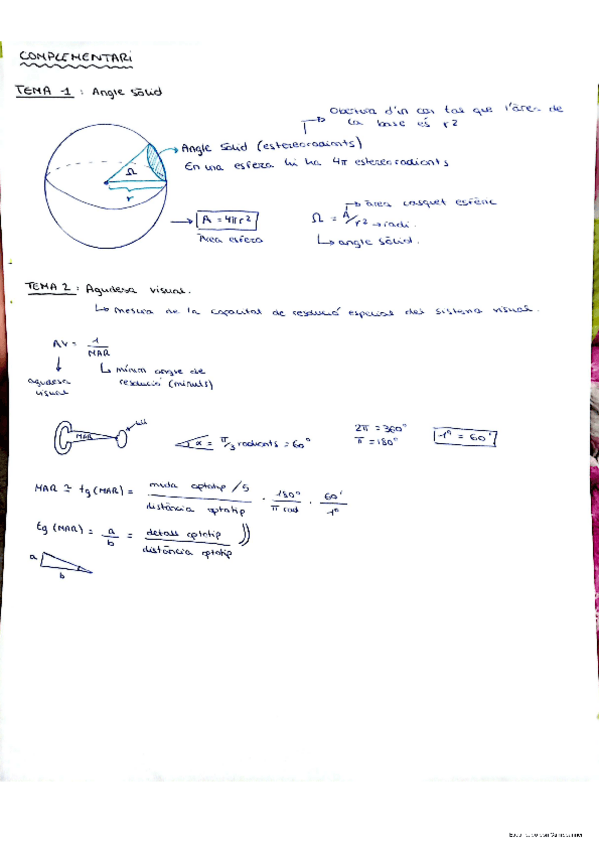 COMPLEMENTARI
TEMA 1 : Angle sòlid
Obertura d'un con tal que l'àrea de
la base és r2
Angle sòlid (estereoradiants)
En una esfera hi ha 4π estereoradiants
Ω
r
A = 4πr2
Àrea esfera
Àrea casquet esfèric
Ω = A/r2 → radi.
angle sòlid.
TEMA 2 : Agudesa visual.
Mesura de la capacitat de resolució espacial del sistema visual.
AV = 1/MAR
agudesa
visual
mínim angle de
resolució (minuts)
MAR
ull
α = π/3 radiants = 60°
2π = 360°
π = 180°
1° = 60'
MAR ≃ tg (MAR) = mida optotip /5 / distància optotip · 180° / π rad · 60' / 1°
tg (MAR) = a/b = detall optotip / distància optotip
a
b